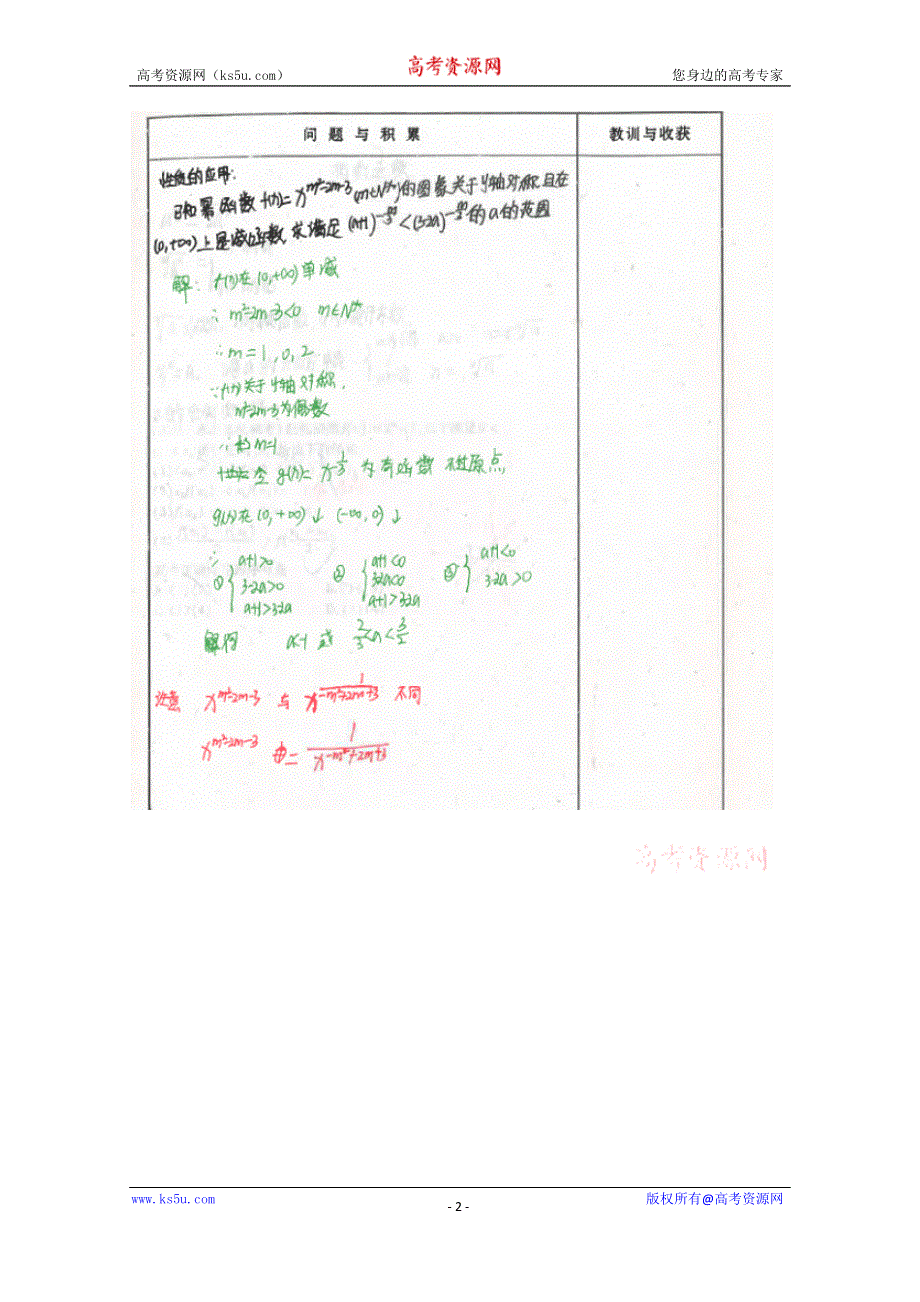 高考资源网（ks5u.com）
高考资源网
您身边的高考专家
问题与积累
教训与收获
性质的应用:
已知幂函数 f(x)=x^{m²-2m-3}(m∈N*)的图象关于y轴对称,且在
(0,+∞)上是减函数,求满足 (a+1)^{-m/3}<(3-2a)^{-m/3}的a的范围
解: f(x)在(0,+∞)单减
∴ m²-2m-3<0 m∈N*
∴ m=1,0,2
∵f(x)关于y轴对称,
m²-2m-3为偶数
∴ m=1
令 g(x)=x^{-1/3} 为奇函数 不过原点
g(x)在(0,+∞)↓ (-∞,0)↓
∴ ① { a+1>0 3-2a>0 a+1>3-2a ② { a+1<0 3-2a<0 a+1>3-2a ③ { a+1<0 3-2a>0
解得 a<-1 或 2/3<a<3/2
注意 x^{m²-2m-3} 与 x^{1/(-m²+2m+3)} 不同
x^{m²-2m-3} = 1/x^{-m²+2m+3}
高考资源网
www.ks5u.com
- 2 -
版权所有@高考资源网